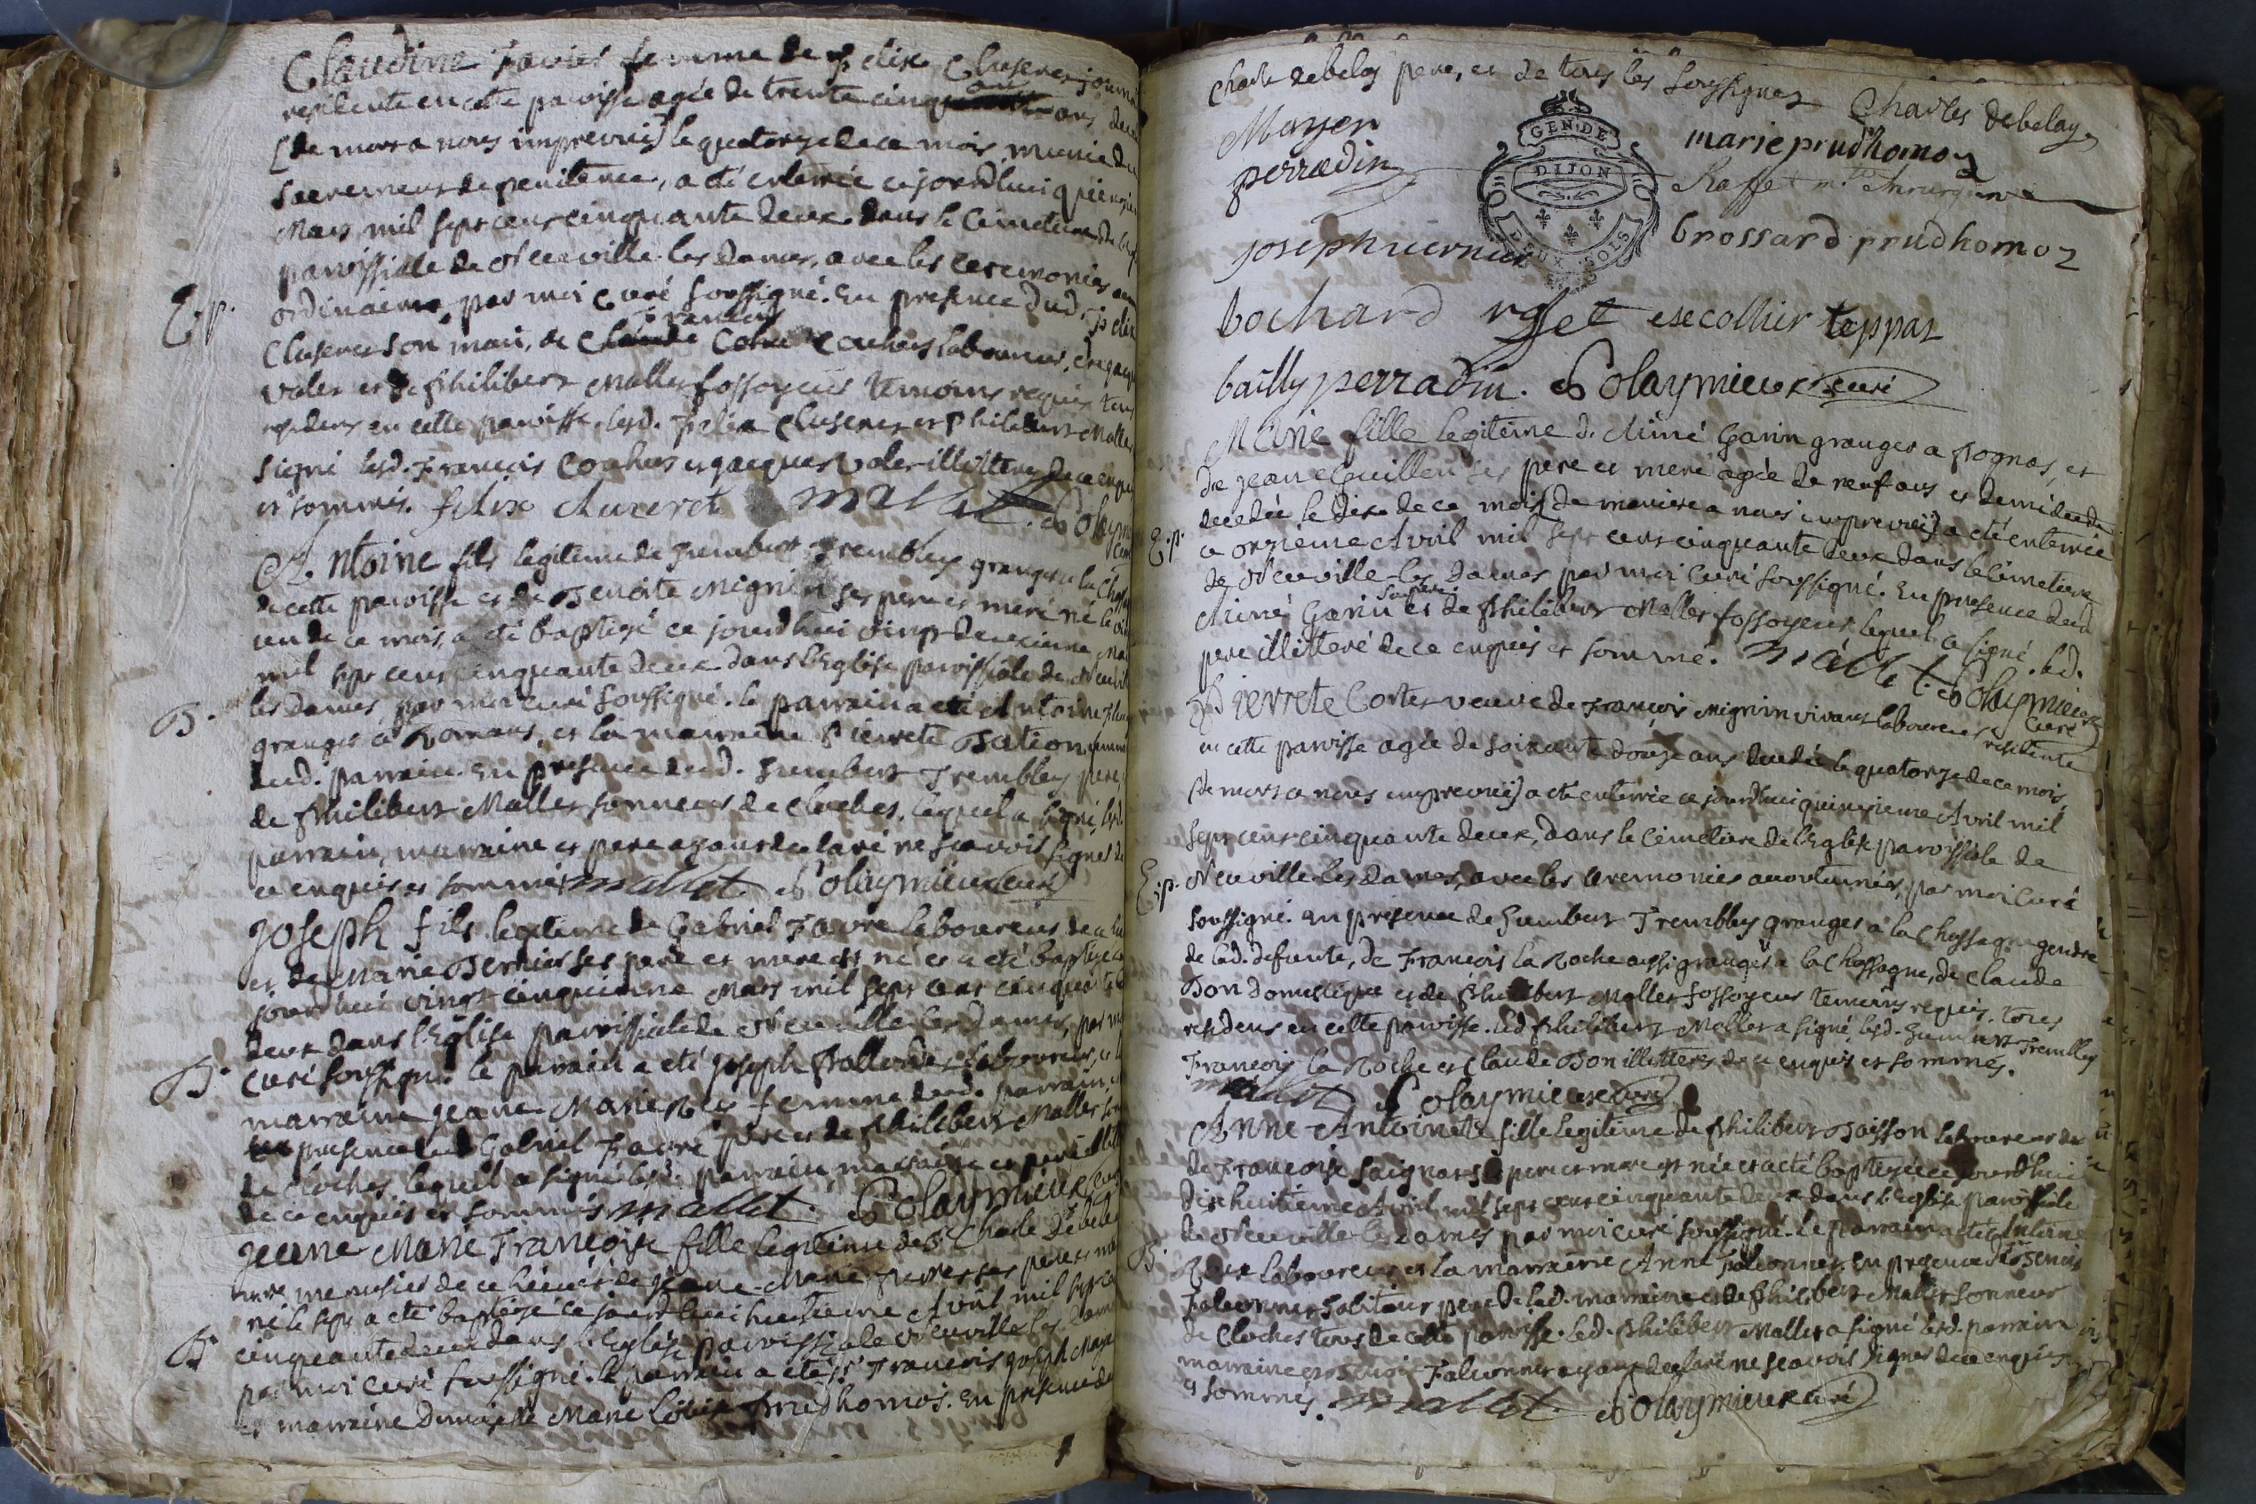 Claudine Favier femme de felix Cluseret journa
residente en cette paroisse agée de trente cinq ans deced
(de mort a nous imprevuë) le quatorze de ce mois munie du
sacrement de penitence, a été enterrée ce jourdhui quinzie
Mars mil sept cent cinquante deux dans le Cimetiere de l'egl
paroissiale de Neuville les dames, avec les ceremonies
ordinaires par moi Curé soussigné. En presence dud. felix
Ep.
Cluseret son mari, de François Cochet laboureur, de jacque
Volet et de Philibert Mallet fossoyeur temoins requis tous
residens en cette paroisse. lesd. felix Cluseret et Philibert Mallet
signé lesd. François Cochet et jacques Volet illitterés de ce enquis
et sommés. felix cluzeret mallet. Polaymi
curé
Antoine fils legitime de humbert Trembley granger a la Chass
de cette paroisse et de Benoite Mignin ses pere et mere né le
un de ce mois, a été baptizé ce jourdhui vingt deuxieme Ma
mil sept cent cinquante deux dans l'Eglise paroissiale de Neuvil
les Dames, par moi curé soussigné. le parrain a été Antoine
B.
granger a Romans, et la marraine Pierrete Bation femme
dud. parrain. En presence dud. humbert Trembley pere,
de Philibert Mallet sonneur de cloches, lequel a signé, lesd.
parrain, marraine et pere ayant declaré ne sçavoir signer de
ce enquis et sommés mallet Polaymieux curé
Joseph fils legitime de Gabriel Favre laboureur de ce lieu
et de Marie Bernier ses pere et mere est né et a été baptizé ce
jourdhui vingt cinquieme Mars mil sept cent cinquante
deux dans l'Eglise paroissiale de Neuville les Dames, par moi
Curé soussigné. le parrain a été joseph laboureur, et la
B.
marraine jeane Marie femme dud. parrain,
En presence dud Gabriel Favre pere et de Philibert Mallet son
de Cloches lequel a signé lesd. parrain, marraine et pere illit
de ce enquis et sommés mallet. Polaymieux curé
jeane Marie Françoise fille legitime de Sr Charle Debelay
menusier de ce lieu et de jeane Marie ses pere et mere
né le sept a été baptizée ce jourdhui huitieme Avril mil sept cen
B.
cinquante deux dans l'Eglise paroissiale Neuville les Dames
par moi curé soussigné. le parrain a été Sr François joseph Mayer
et marraine demoiselle Marie Prudhomos. En presence de
Charle debelay pere, et de tous les soussignez Charles debelay
Mayer
marie prudhomoz
GEN. DE
DIJON
DEUX SOLS
perradin
Raffet mtre chirurgien
joseph
brossard prudhomoz
bochard teppaz
bailly perradin. Polaymieux curé
Marie fille legitime de Aimé Garin granger a Fognas, et
de jeane Guillen ses pere et mere agée de neuf ans et demi decedée
decedée le dix de ce mois (de maniere a nous imprevuë) a été enterrée
E.p.
ce onzieme Avril mil sept cent cinquante deux dans le cimetiere
de Neuville les Dames par moi Curé soussigné. En presence dud
Aimé Garin son pere et de Philibert Mallet fossoyeur lequel a signé. led.
pere illitteré de ce enquis et sommé. mallet. Polaymieux
Curé
Pierrete Cortet veuve de François Mignin vivant laboureur residente
en cette paroisse agée de soixante douze ans decedée le quatorze de ce mois
(de mort a nous imprevuë) a été enterrée ce jourdhui quinzieme Avril mil
sept cent cinquante deux, dans le cimetiere de l'Eglise paroissiale de
E.p.
Neuville les Dames, avec les ceremonies accoutumées, par moi Curé
soussigné. en presence de humbert Trembley granger a la Chassagne gendre
de lad. defunte, de François la Roche aussi granger a la Chassagne, de Claude
Bon domestique et de Philibert Mallet fossoyeur temoins requis. tous
residens en cette paroisse. led Philibert Mallet a signé, lesd. humbert Trembley
François la Roche et Claude Bon illitterés de ce enquis et sommés.
mallet Polaymieux curé
Anne Antoinete fille legitime de Philibert Boisson laboureur et
de Françoise ses pere et mere est née et a été baptizée ce jourdhui
dix huitieme Avril mil sept cent cinquante deux dans l'Eglise paroissiale
de Neuville les Dames par moi curé soussigné. le parrain a été Antoine
B.
Roux laboureur et la marraine Anne Falconnet. En presence de Benoit
Falconnet habitant pere de lad. marraine et de Philibert Mallet sonneur
de Cloches tous de cette paroisse. led. Philibert Mallet a signé lesd. parrain
marraine et Benoit Falconnet ayant declaré ne sçavoir signer de ce enquis
et sommés. mallet. Polaymieux curé